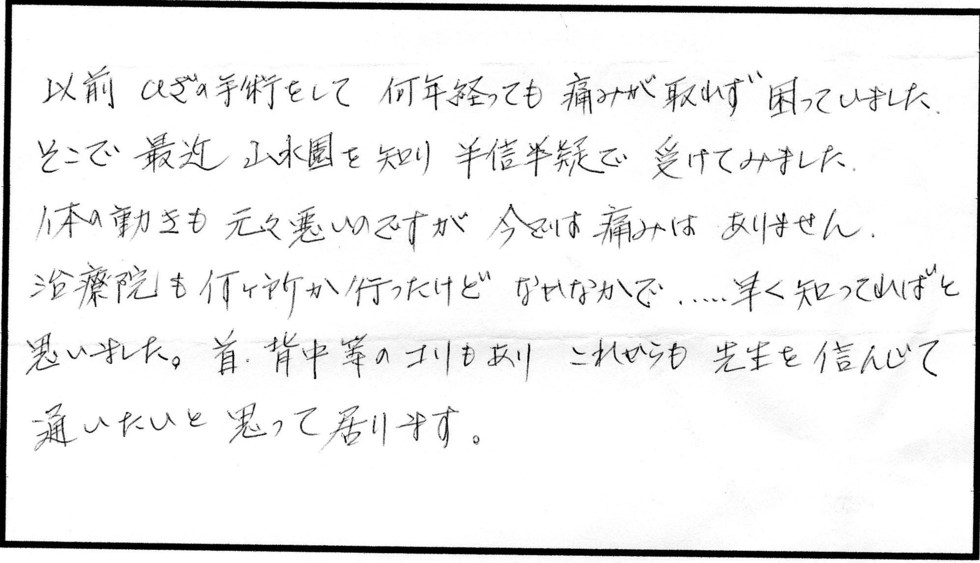 以前 ひざの手術をして 何年経っても 痛みが取れず 困っていました.
そこで 最近 山水園を知り 半信半疑で 受けてみました.
体の動きも 元々悪いのですが 今では痛みは ありません.
治療院も何ヶ所か行ったけど なかなかで.....早く知ってればと
思いました。首.背中等のコリもあり これからも 先生を信んじて
通いたいと 思って居ります。